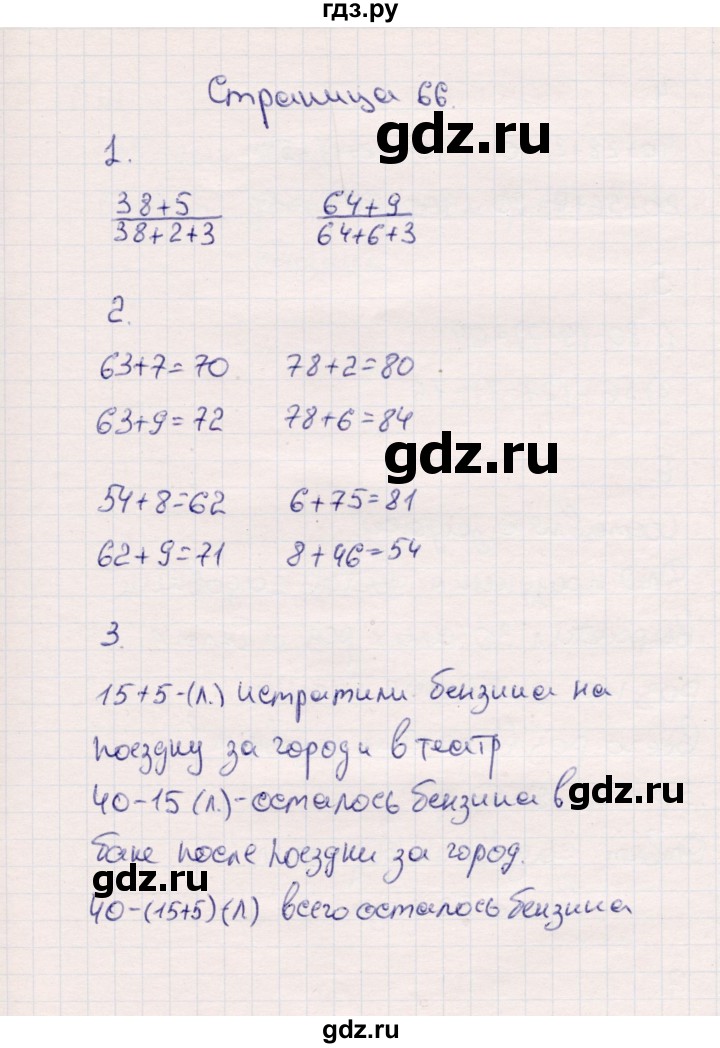 гдз.ру
Страница 66.
gdz.ru
1.
38+5 64+9
38+2+3 64+6+3
2.
63+7=70 78+2=80
63+9=72 78+6=84
gdz.ru
54+8=62 6+75=81
62+9=71 8+46=54
3.
15+5-(л.) истратили бензина на
поездку за город и в театр
gdz.ru
40-15 (л.)-осталось бензина в
баке после поездки за город.
gdz.ru
40-(15+5) (л) всего осталось бензина
gdz.ru